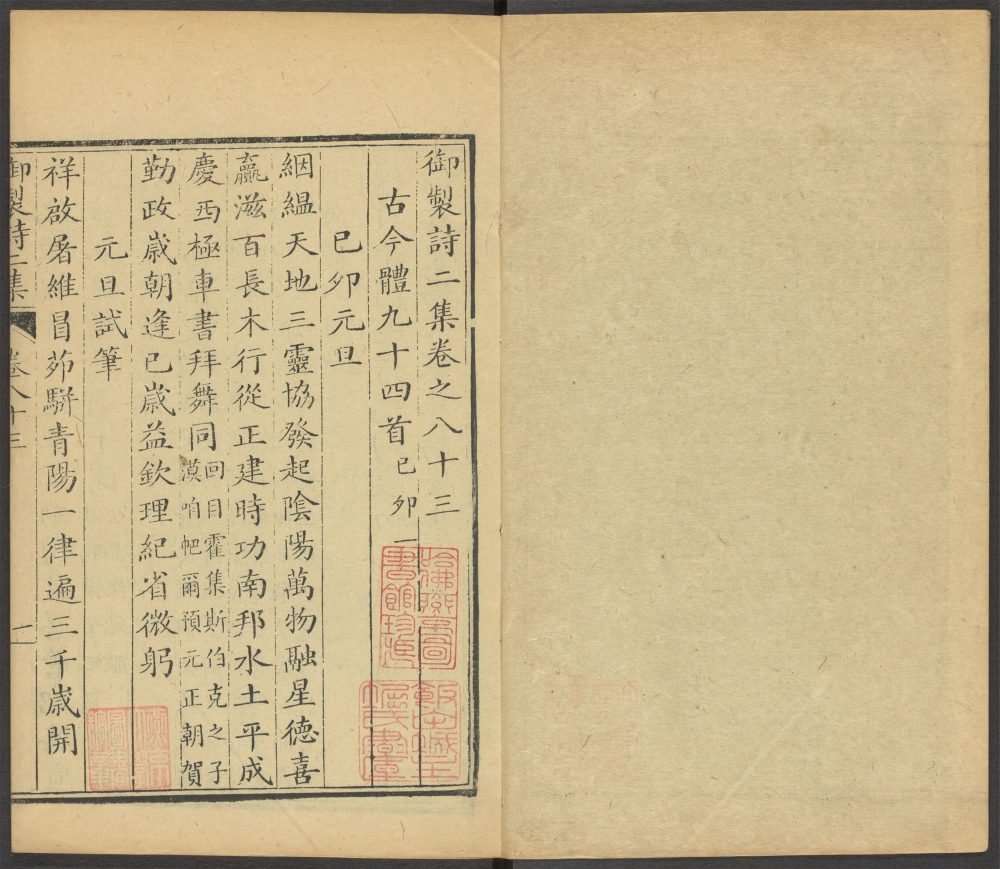 御製詩二集卷之八十三
古今體九十四首己卯一
己卯元旦
絪緼天地三靈協發起陰陽萬物融星德喜
贏滋百長木行從正建時功南邦水土平成
慶西極車書拜舞同回目霍集斯伯克之子漠咱帊爾預元正朝賀
勤政歲朝逢己歲益欽理紀省微躬
元旦試筆
祥啟屠維冒茆駢青陽一律遍三千歲開
御製詩二集 卷八十三 一